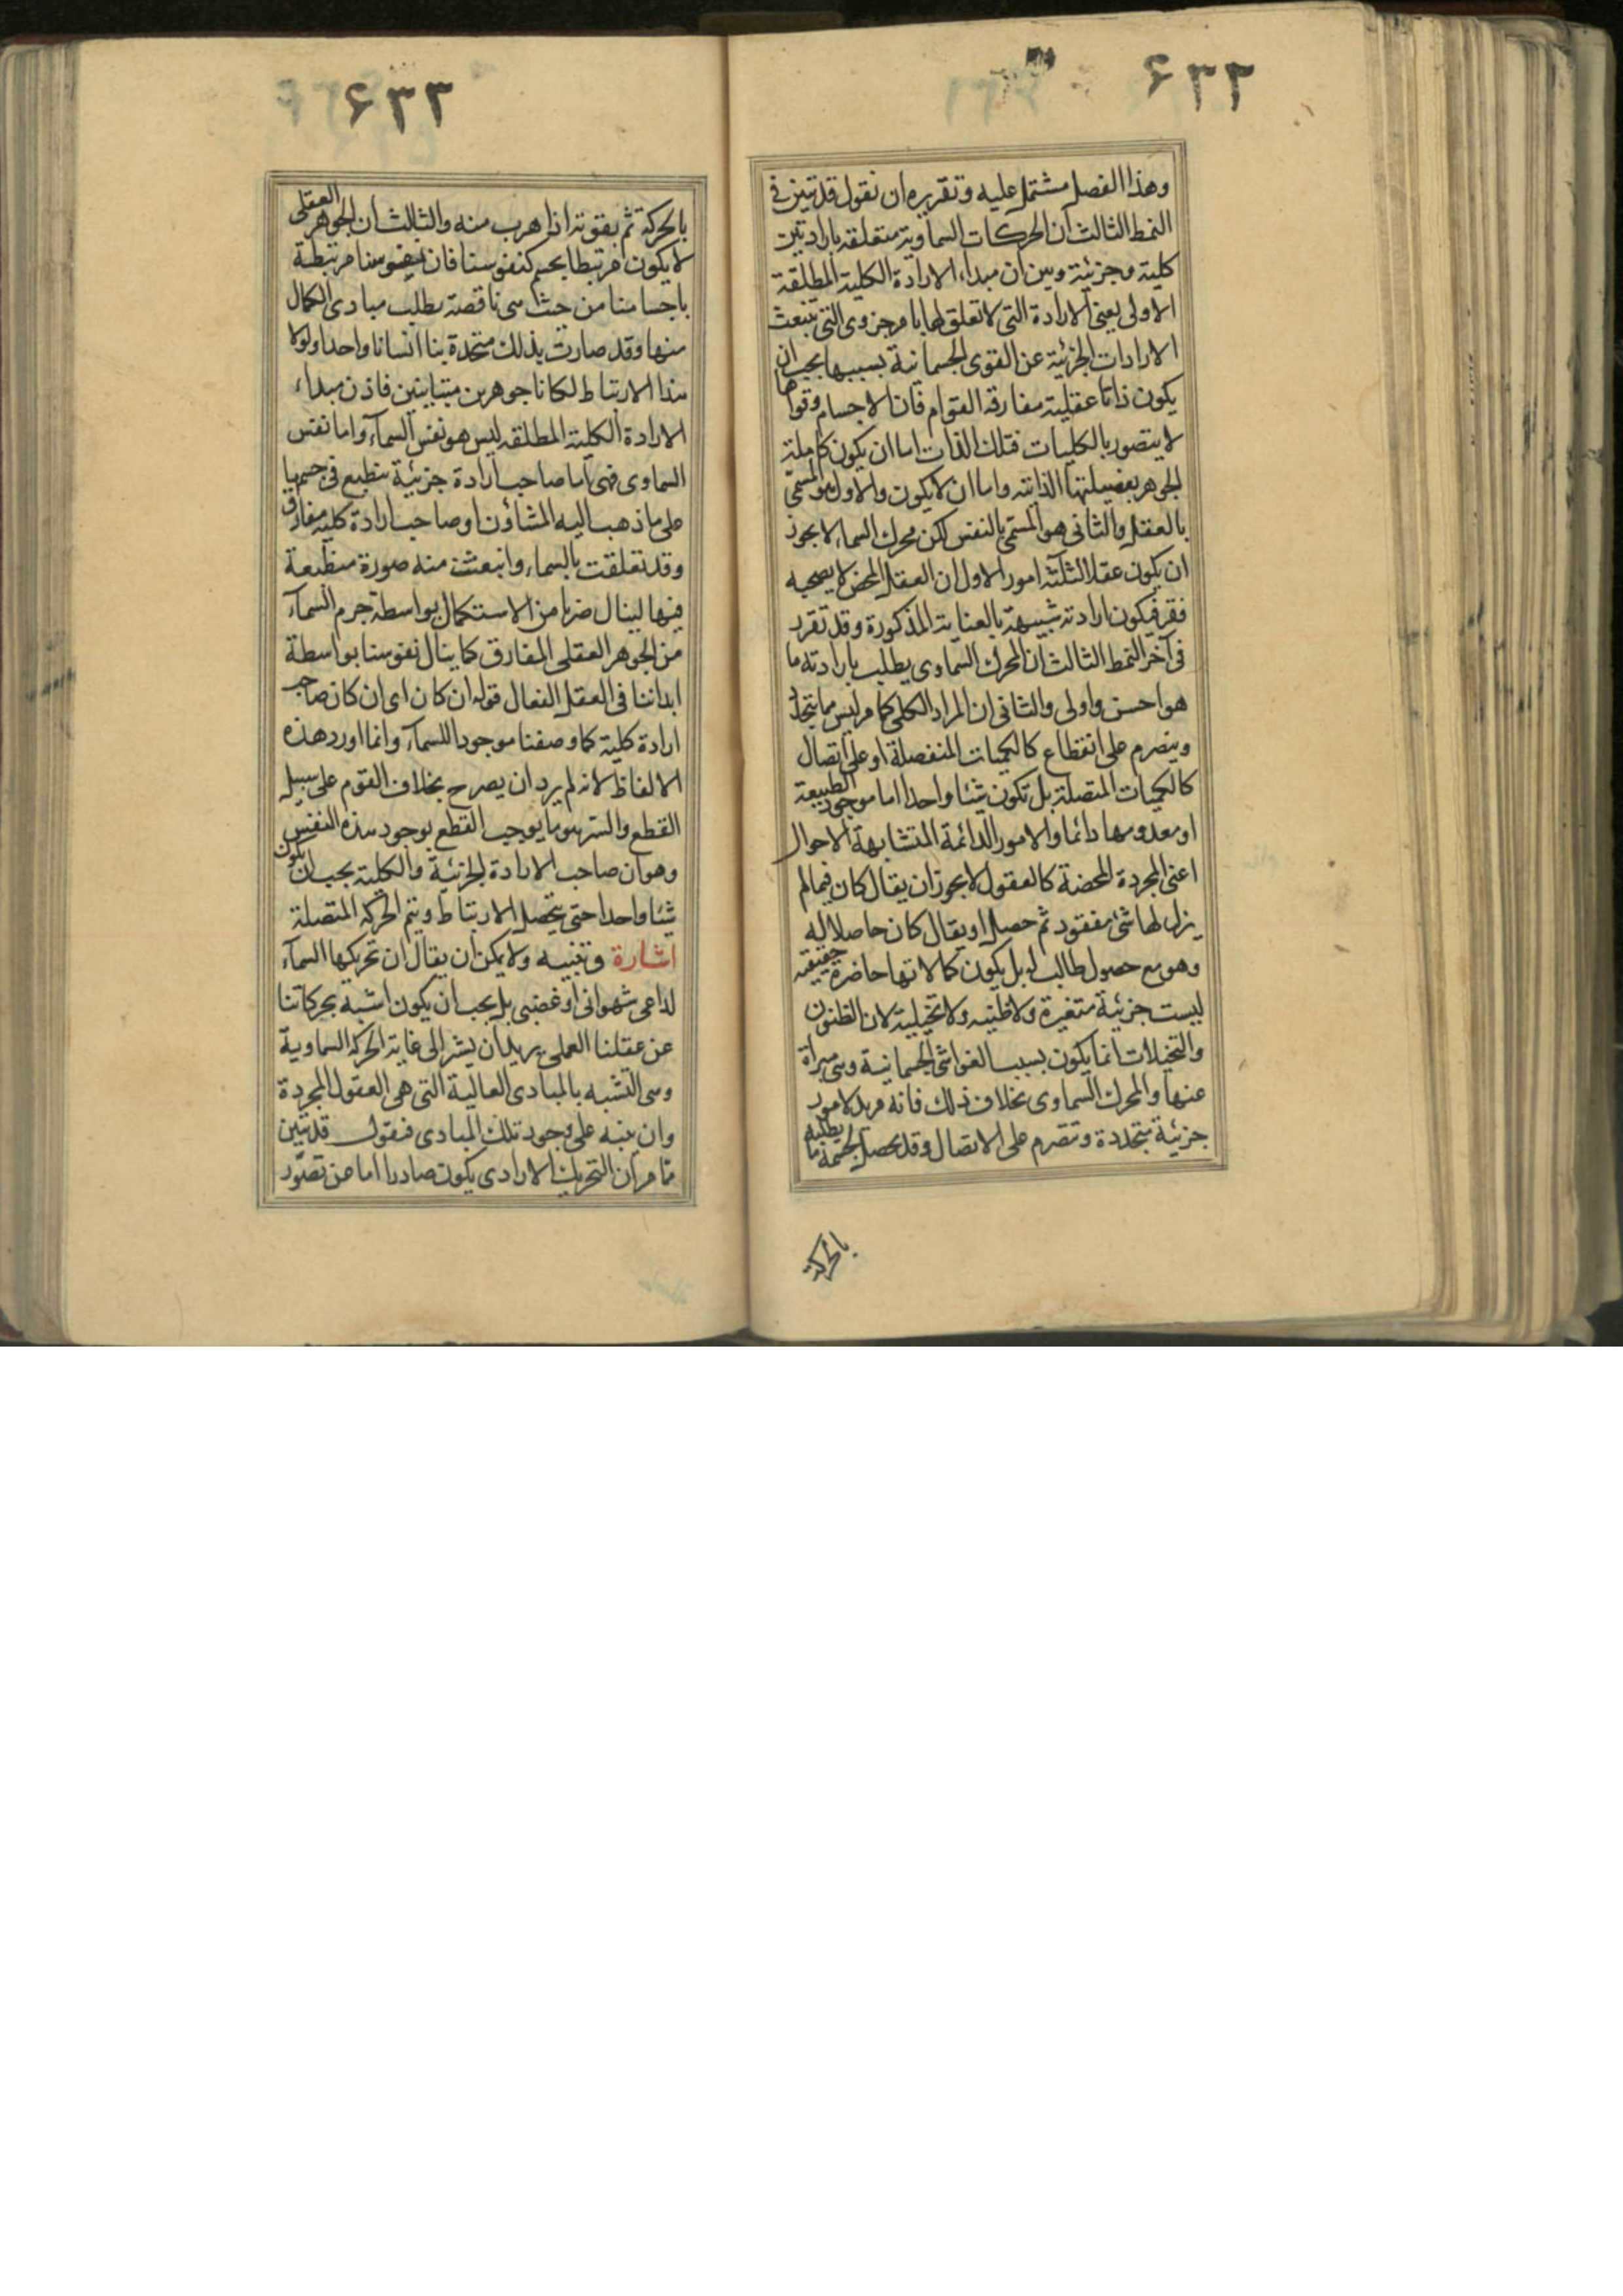 ۶۳۲
وهذا الفصل مشتمل عليه وتقريره ان نقول قد تبين في
النمط الثالث ان الحركات السماوية متعلقة بارادتين
كلية وجزئية وبين ان مبداء الارادة الكلية المطلقة
الاولى يعنى الارادة التى لا تعلق لها بامر جزوى التى ينبعث
الارادات الجزئية عن القوى الجسمانية بسببها يجب ان
يكون ذاتا عقلية مفارقة القوام فان الاجسام وقواها
لا يتصور بالكليات فتلك الذات اما ان يكون كاملة
الجوهر بفضيلتها الذاتية واما ان لا يكون والاول هو المسمى
بالعقل والثانى هو المسمى بالنفس لكن محرك السماء لا يجوز
ان يكون عقلا لثلثة امور الاول ان العقل المحض لا يصحبه
فقر فيكون ارادته شبيهة بالعناية المذكورة وقد تقرر
فى آخر النمط الثالث ان المحرك السماوى يطلب بارادته ما
هو احسن واولى والثانى ان المراد الكلى كما مر ليس مما يتجدد
وينصرم على انقطاع كالكميات المنفصلة او على اتصال
كالكميات المتصلة بل تكون شيئا واحدا اما موجود الطبيعة
او معدومها دائما والامور الدائمة المتشابهة الاحوال
اعنى المجردة المحضة كالعقول لا يجوز ان يقال كان فيما لم
يزل لها شئ مفقود ثم حصل او يقال كان حاصلا له
وهو مع حصول طالب له بل يكون كمالاتها حاضرة حقيقية
ليست جزئية متغيرة ولا ظنية ولا تخيلية لان الظنون
والتخيلات انما يكون بسبب الغواشى الجسمانية وهى مبراة
عنها والمحرك السماوى بخلاف ذلك فانه مريد لامور
جزئية يتجددة وتتصرم على الاتصال وقد يحصل لجسمه ما يطلبه
بالحركة
۶۳۳
بالحركة ثم يفوته اذا هرب منه والثالث ان الجوهر العقلى
لا يكون مرتبطا بجسم كنفوسنا فان نفوسنا مرتبطة
باجسامنا من حيث هى ناقصة يطلب مبادى الكمال
منها وقد صارت بذلك متحدة بنا انسانا واحدا ولولا
هذا الارتباط لكانا جوهرين متباينين فاذن مبداء
الارادة الكلية المطلقة ليس هو نفس السماء واما نفس
السماوى فهى اما صاحب ارادة جزئية ينطبع فى جسمها
على ما ذهب اليه المشاؤن او صاحب ارادة كلية مفارق
وقد تعلقت بالسماء وانبعثت منه صورة منطبعة
فيها لينال ضربا من الاستكمال بواسطة جرم السماء
من الجوهر العقلى المفارق كما ينال نفوسنا بواسطة
ابداننا فى العقل الفعال قوله ان كان اى ان كان صاحب
ارادة كلية كما وصفنا موجودا للسماء وانما اورد هذه
الالفاظ لانه لم يرد ان يصرح بخلاف القوم على سبيل
القطع والسر هو ما يوجب القطع بوجود هذه النفس
وهو ان صاحب الارادة الجزئية والكلية يجب ان يكون
شيئا واحدا حتى يتحصل الارتباط ويتم الحركة المتصلة
اشارة وتنبيه ولا يمكن ان يقال ان تحريكها السماء
لداعى شهوانى او غضبى بل يجب ان يكون اشبه بحركاتنا
عن عقلنا العملى يريد ان يشير الى غاية الحركة السماوية
وهى التشبه بالمبادى العالية التى هى العقول المجردة
وان ينبه على وجود تلك المبادى فنقول قد تبين
مما مر ان التحريك الارادى يكون صادرا اما عن تصور